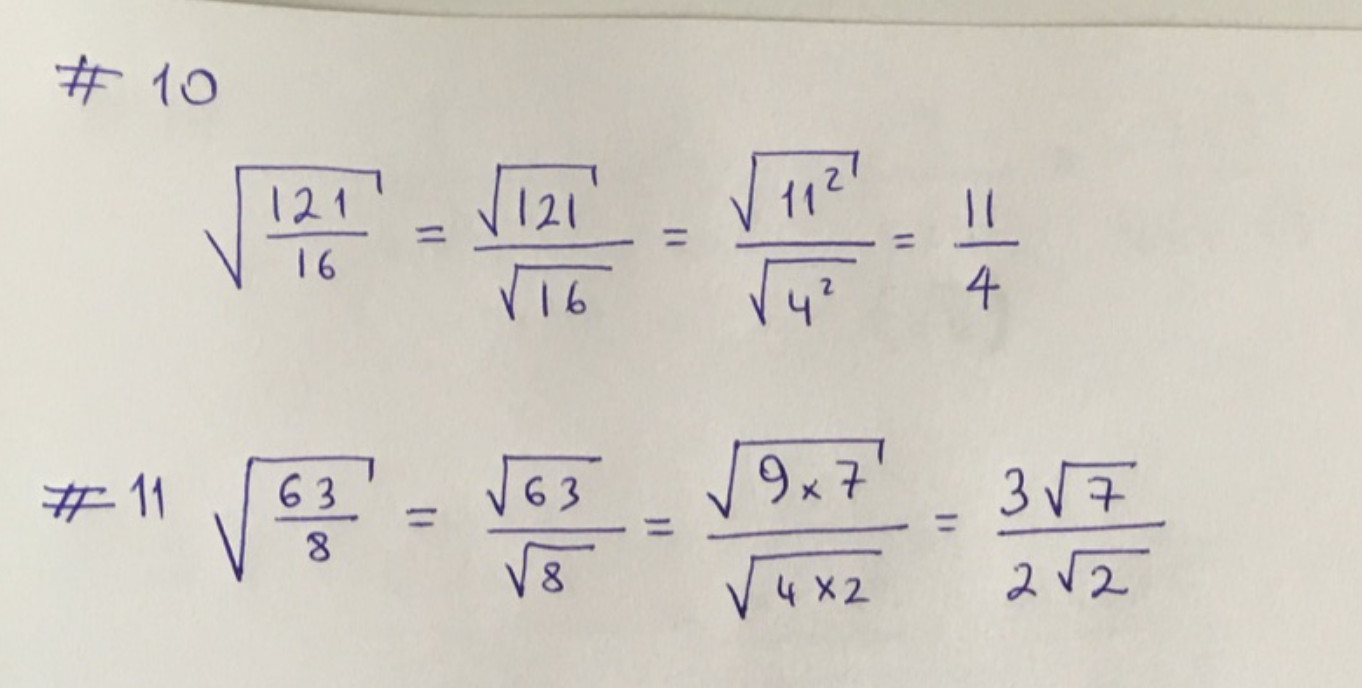 # 10
√(121/16) = √121/√16 = √11²/√4² = 11/4
# 11 √(63/8) = √63/√8 = √(9×7)/√(4×2) = 3√7/2√2